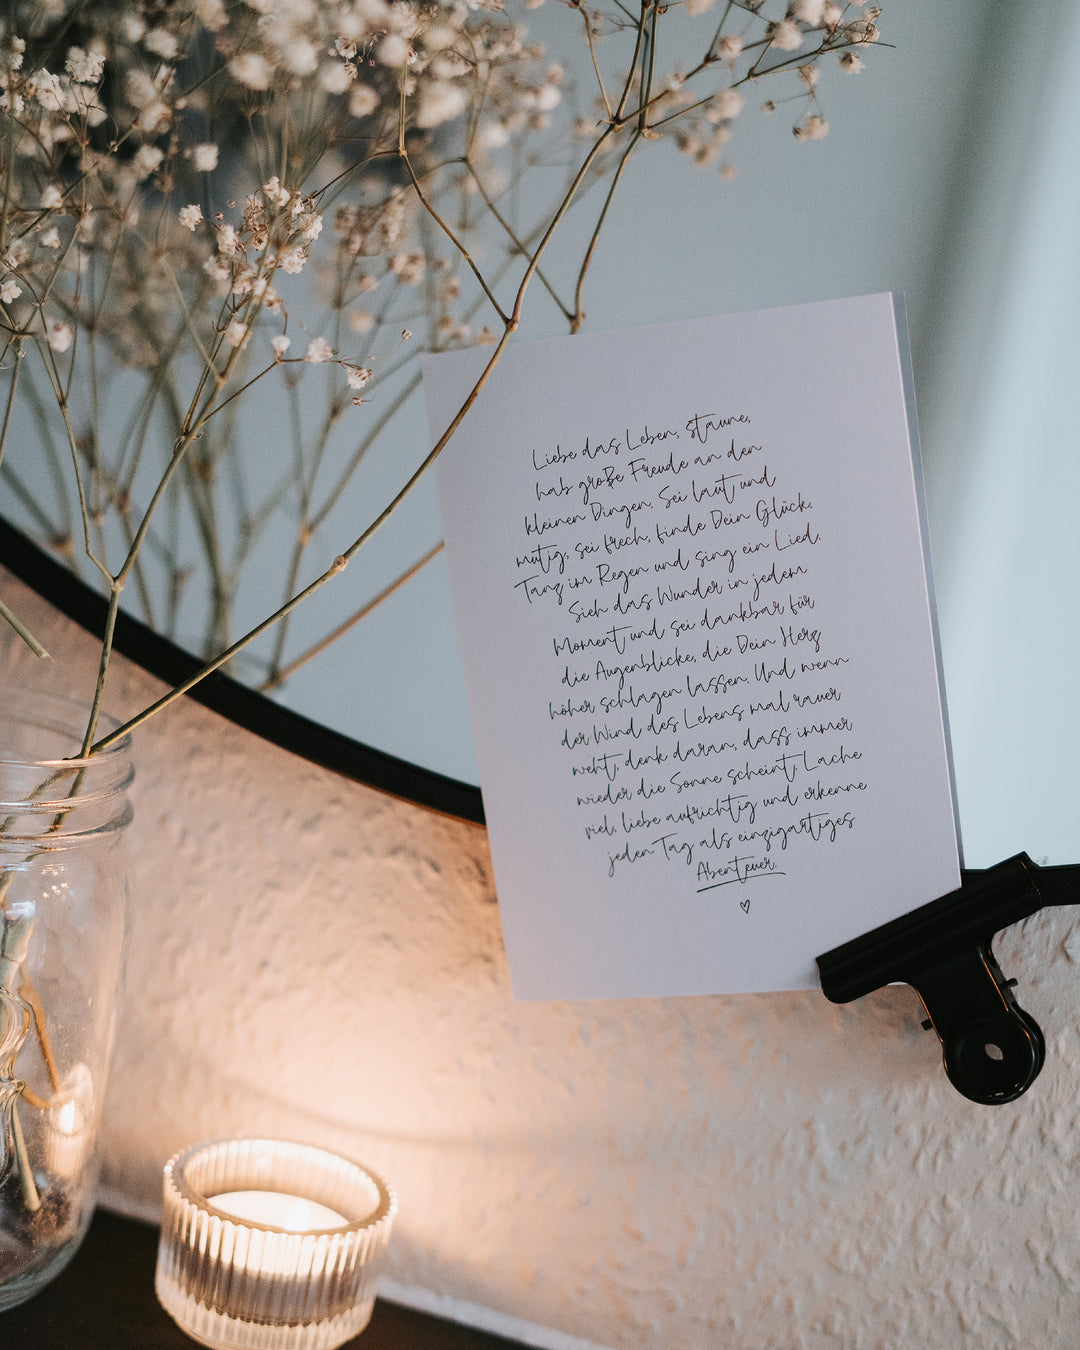 Liebe das Leben, staune,
hab große Freude an den
kleinen Dingen. Sei laut und
mutig, sei frech, finde Dein Glück.
Tanz im Regen und sing ein Lied.
Sieh das Wunder in jedem
Moment und sei dankbar für
die Augenblicke, die Dein Herz
höher schlagen lassen. Und wenn
der Wind des Lebens mal rauer
weht, denk daran, dass immer
wieder die Sonne scheint. Lache
viel, liebe aufrichtig und erkenne
jeden Tag als einzigartiges
Abenteuer.
♡